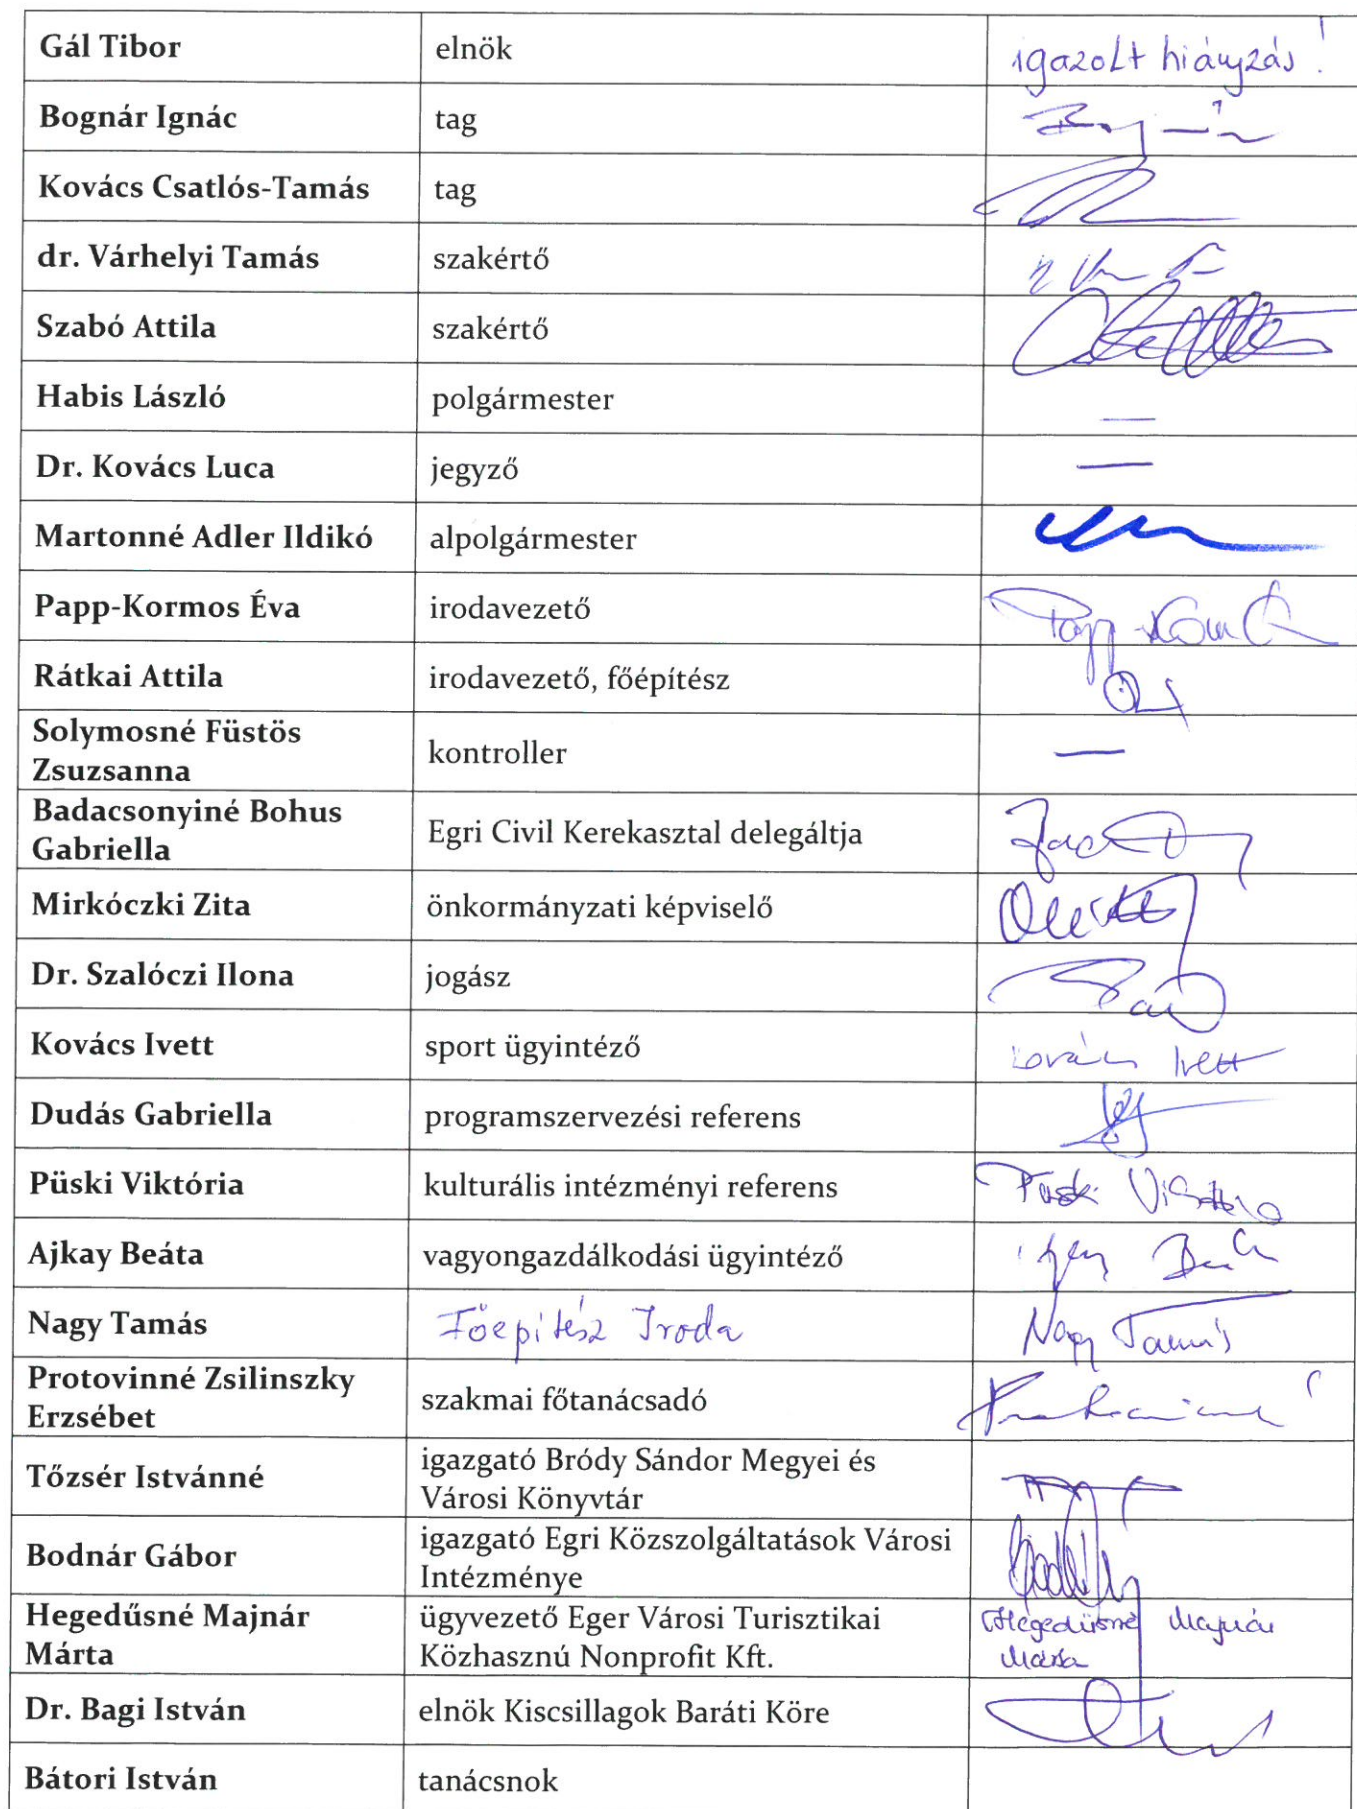 Gál Tibor elnök igazolt hiányzás!
Bognár Ignác tag
Kovács Csatlós-Tamás tag
dr. Várhelyi Tamás szakértő
Szabó Attila szakértő
Habis László polgármester —
Dr. Kovács Luca jegyző —
Martonné Adler Ildikó alpolgármester
Papp-Kormos Éva irodavezető
Rátkai Attila irodavezető, főépítész
Solymosné Füstös
Zsuzsanna
kontroller —
Badacsonyiné Bohus
Gabriella
Egri Civil Kerekasztal delegáltja
Mirkóczki Zita önkormányzati képviselő
Dr. Szalóczi Ilona jogász
Kovács Ivett sport ügyintéző Kovács Ivett
Dudás Gabriella programszervezési referens
Püski Viktória kulturális intézményi referens Püski Viktória
Ajkay Beáta vagyongazdálkodási ügyintéző
Nagy Tamás Főépítész Iroda Nagy Tamás
Protovinné Zsilinszky
Erzsébet
szakmai főtanácsadó
Tőzsér Istvánné
igazgató Bródy Sándor Megyei és
Városi Könyvtár
Bodnár Gábor
igazgató Egri Közszolgáltatások Városi
Intézménye
Hegedűsné Majnár
Márta
ügyvezető Eger Városi Turisztikai
Közhasznú Nonprofit Kft.
Hegedűsné Majnár
Márta
Dr. Bagi István elnök Kiscsillagok Baráti Köre
Bátori István tanácsnok